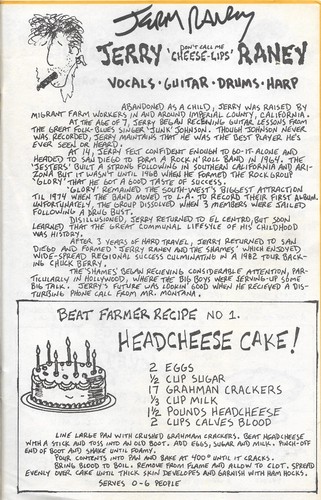 Jerry Raney
JERRY 'DON'T CALL ME CHEESE-LIPS' RANEY
VOCALS · GUITAR · DRUMS · HARP
ABANDONED AS A CHILD, JERRY WAS RAISED BY
MIGRANT FARM WORKERS IN AND AROUND IMPERIAL COUNTY, CALIFORNIA.
AT THE AGE OF 7, JERRY BEGAN RECIEVING GUITAR LESSONS FROM
THE GREAT FOLK-BLUES SINGER 'JUNK' JOHNSON. THOUGH JOHNSON NEVER
WAS RECORDED, JERRY MAINTAINS THAT HE WAS THE BEST PLAYER HE'S
EVER SEEN OR HEARD.
AT 14, JERRY FELT CONFIDENT ENOUGH TO GO-IT-ALONE AND
HEADED TO SAN DIEGO TO FORM A ROCK N' ROLL BAND IN 1964. THE
'JESTERS' BUILT A STRONG FOLLOWING IN SOUTHERN CALIFORNIA AND ARI-
ZONA BUT IT WASN'T UNTIL 1968 WHEN HE FORMED THE ROCK GROUP
'GLORY' THAT HE GOT A GOOD TASTE OF SUCCESS.
'GLORY' REMAINED THE SOUTH-WEST'S BIGGEST ATTRACTION
TIL 1979 WHEN THE BAND MOVED TO L.A. TO RECORD THEIR FIRST ALBUM.
UNFORTUNATELY, THE GROUP DISSOLVED WHEN 3 MEMBERS WERE JAILED
FOLLOWING A DRUG BUST.
DISILLUSIONED, JERRY RETURNED TO EL CENTRO, BUT SOON
LEARNED THAT THE GREAT COMMUNAL LIFESTYLE OF HIS CHILDHOOD
WAS HISTORY.
AFTER 3 YEARS OF HARD TRAVEL, JERRY RETURNED TO SAN
DIEGO AND FORMED 'JERRY RANEY AND THE SHAMES' WHICH ENJOYED
WIDE-SPREAD REGIONAL SUCCESS CULMINATING IN A 1982 TOUR BACK-
ING CHUCK BERRY.
THE 'SHAMES' BEGAN RECIEVING CONSIDERABLE ATTENTION, PAR-
TICULARLY IN HOLLYWOOD, WHERE THE BIG BOYS WERE SERVING-UP SOME
BIG TALK. JERRY'S FUTURE WAS LOOKIN' GOOD WHEN HE RECIEVED A DIS-
TURBING PHONE CALL FROM MR. MONTANA.
BEAT FARMER RECIPE NO 1.
HEADCHEESE CAKE!
2 EGGS
½ CUP SUGAR
17 GRAHMAN CRACKERS
⅓ CUP MILK
1½ POUNDS HEADCHEESE
2 CUPS CALVES BLOOD
LINE LARGE PAN WITH CRUSHED GRAHMAM CRACKERS. BEAT HEADCHEESE
WITH A STICK AND TOSS INTO AN OLD BOOT. ADD EGGS, SUGAR AND MILK. PINCH-OFF
END OF BOOT AND SHAKE UNTIL FOAMY.
POUR CONTENTS INTO PAN AND BAKE AT 400° UNTIL IT CRACKS.
BRING BLOOD TO BOIL. REMOVE FROM FLAME AND ALLOW TO CLOT. SPREAD
EVENLY OVER CAKE UNTIL THICK SKIN DEVELOPES AND GARNISH WITH HAM HOCKS.
SERVES 0-6 PEOPLE